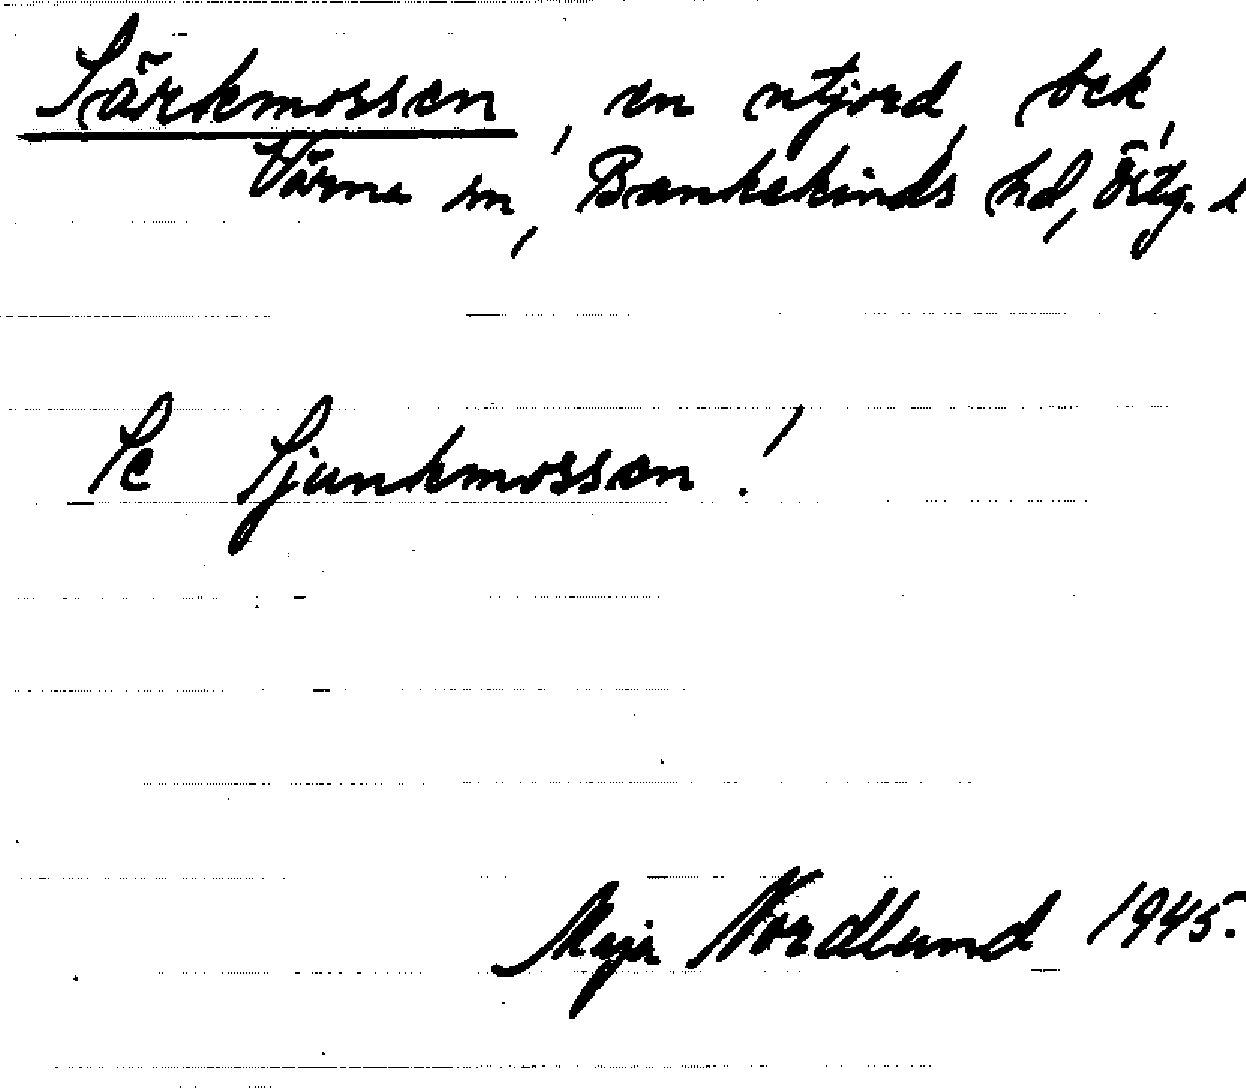 Särkmossen, en utjord, bek,
Värna sn, Bankekinds hd, Östg. l
Se Sjunkmossen!
Maja Nordlund 1945.